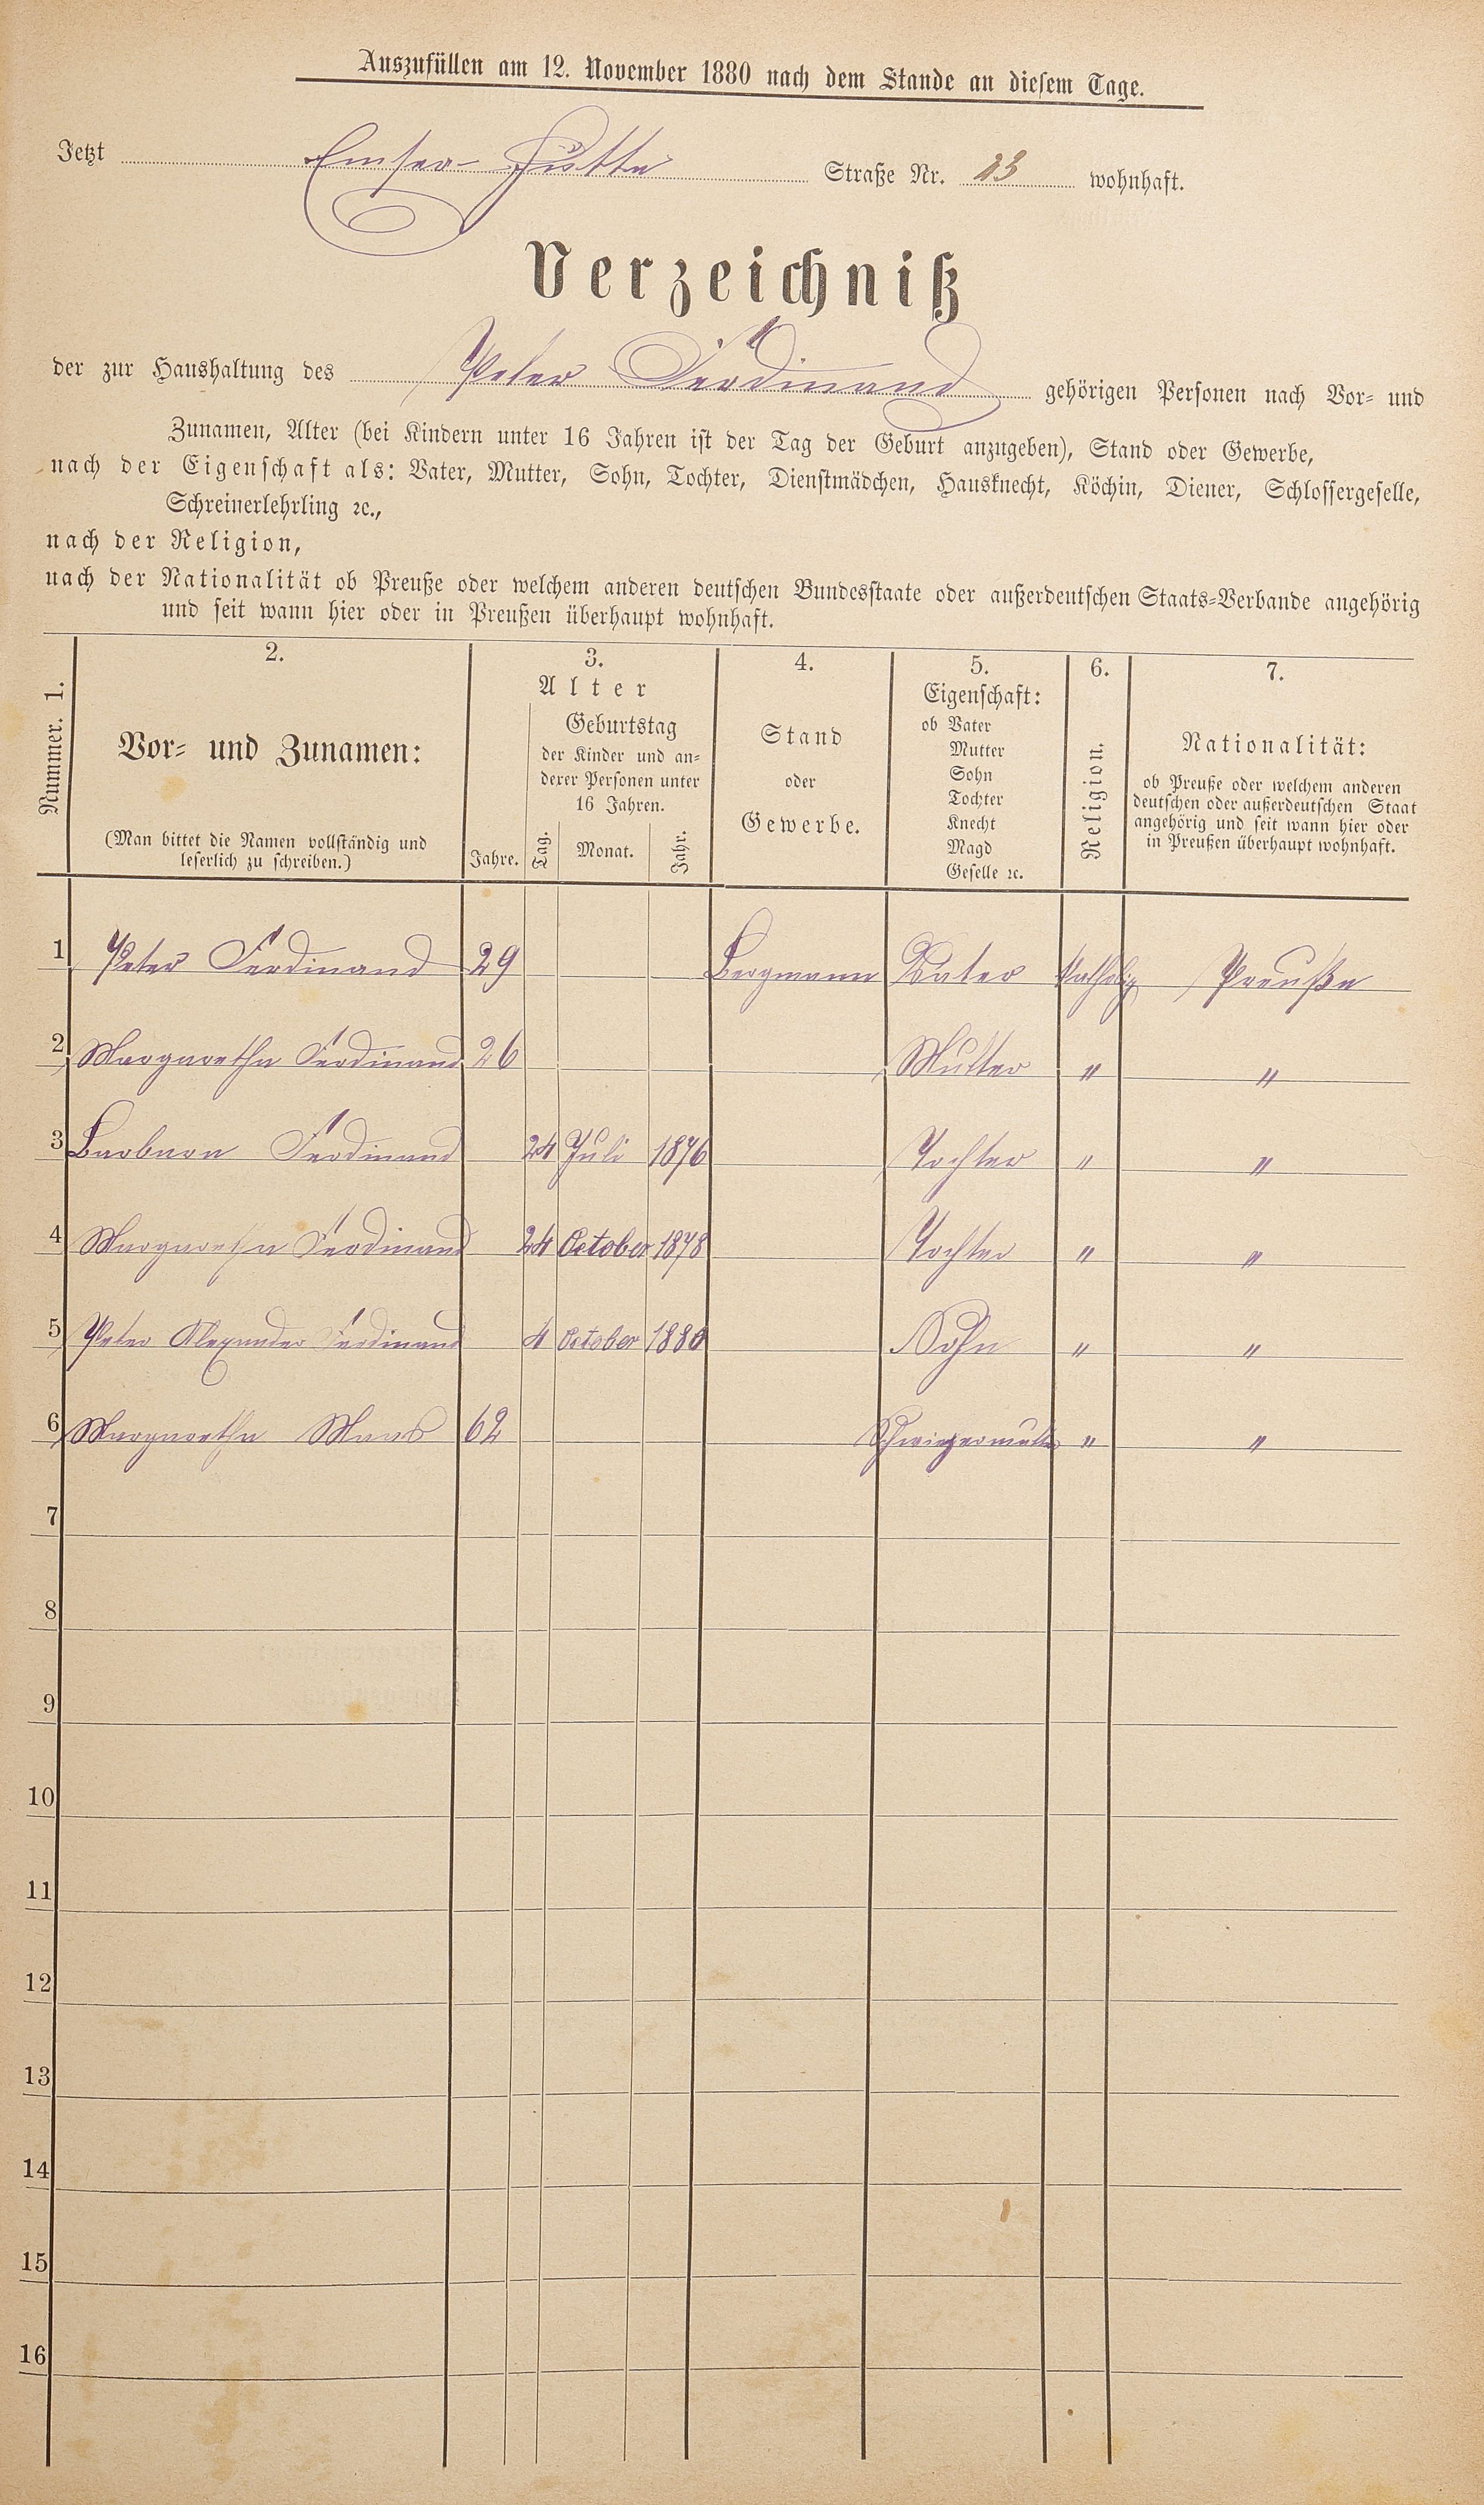 Auszufüllen am 12. November 1880 nach dem Stande an diesem Tage.
Jetzt Emser-Hütte Straße Nr. 23 wohnhaft.
Verzeichniß
der zur Haushaltung des Peter Ferdinand gehörigen Personen nach Vor- und
Zunamen, Alter (bei Kindern unter 16 Jahren ist der Tag der Geburt anzugeben), Stand oder Gewerbe,
nach der Eigenschaft als: Vater, Mutter, Sohn, Tochter, Dienstmädchen, Hausknecht, Köchin, Diener, Schlossergeselle,
Schreinerlehrling ꝛc.,
nach der Religion,
nach der Nationalität ob Preuße oder welchem anderen deutschen Bundesstaate oder außerdeutschen Staats-Verbande angehörig
und seit wann hier oder in Preußen überhaupt wohnhaft.
Nummer. 1.
2.
Vor- und Zunamen:
(Man bittet die Namen vollständig und
leserlich zu schreiben.)
3.
Alter
Jahre.
Geburtstag
der Kinder und an-
derer Personen unter
16 Jahren.
Tag. Monat. Jahr.
4.
Stand
oder
Gewerbe.
5.
Eigenschaft:
ob Vater
Mutter
Sohn
Tochter
Knecht
Magd
Geselle ꝛc.
6.
Religion.
7.
Nationalität:
ob Preuße oder welchem anderen
deutschen oder außerdeutschen Staat
angehörig und seit wann hier oder
in Preußen überhaupt wohnhaft.
1 Peter Ferdinand 29 Bergmann Vater Katholig Preuße
2 Margaretha Ferdinand 26 Mutter " "
3 Barbara Ferdinand 24 Juli 1876 Tochter " "
4 Margaretha Ferdinand 24 October 1878 Tochter " "
5 Peter Alexander Ferdinand 4 October 1880 Sohn " "
6 Margaretha Maas 62 Schwiegermutter " "
7
8
9
10
11
12
13
14
15
16